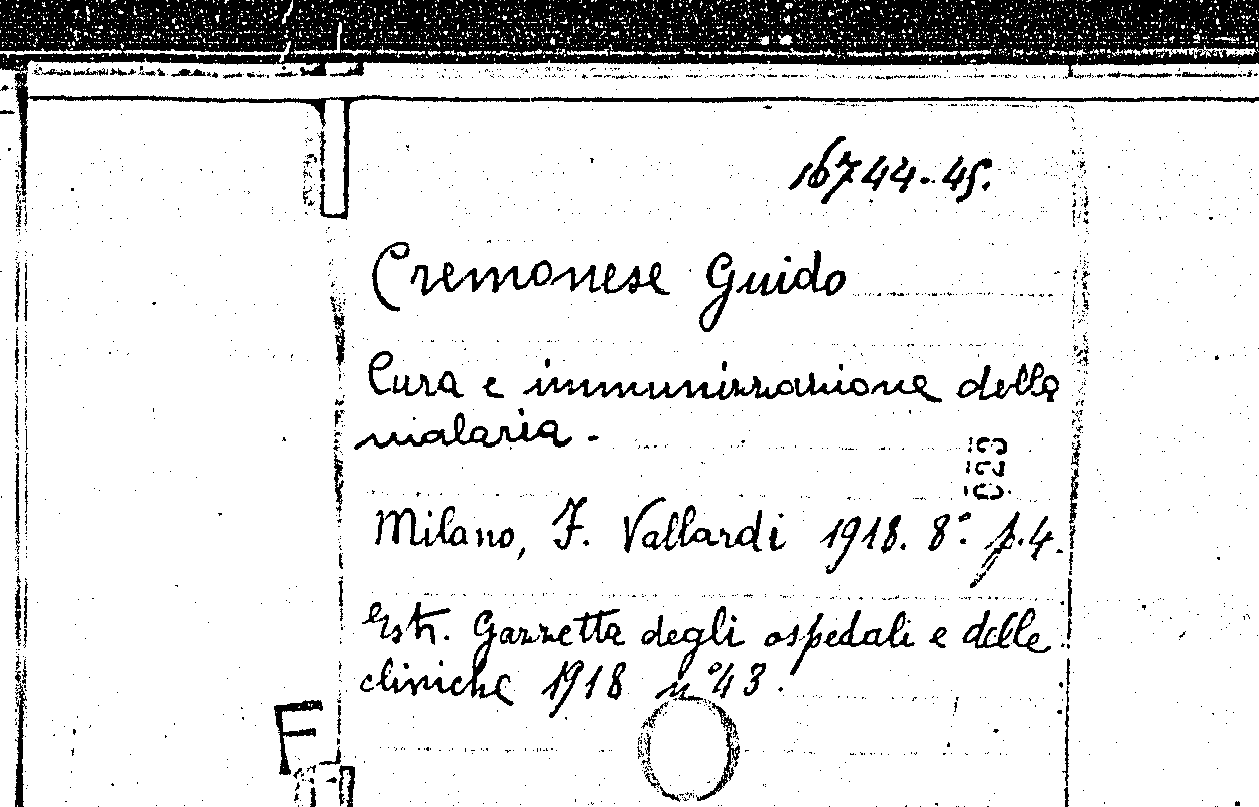 16744-45.
Cremonese Guido
Cura e immunizzazione della
malaria.-
023
Milano, F. Vallardi 1918. 8° p.4.
Estr. Gazzetta degli ospedali e delle
cliniche 1918 n°43.
F